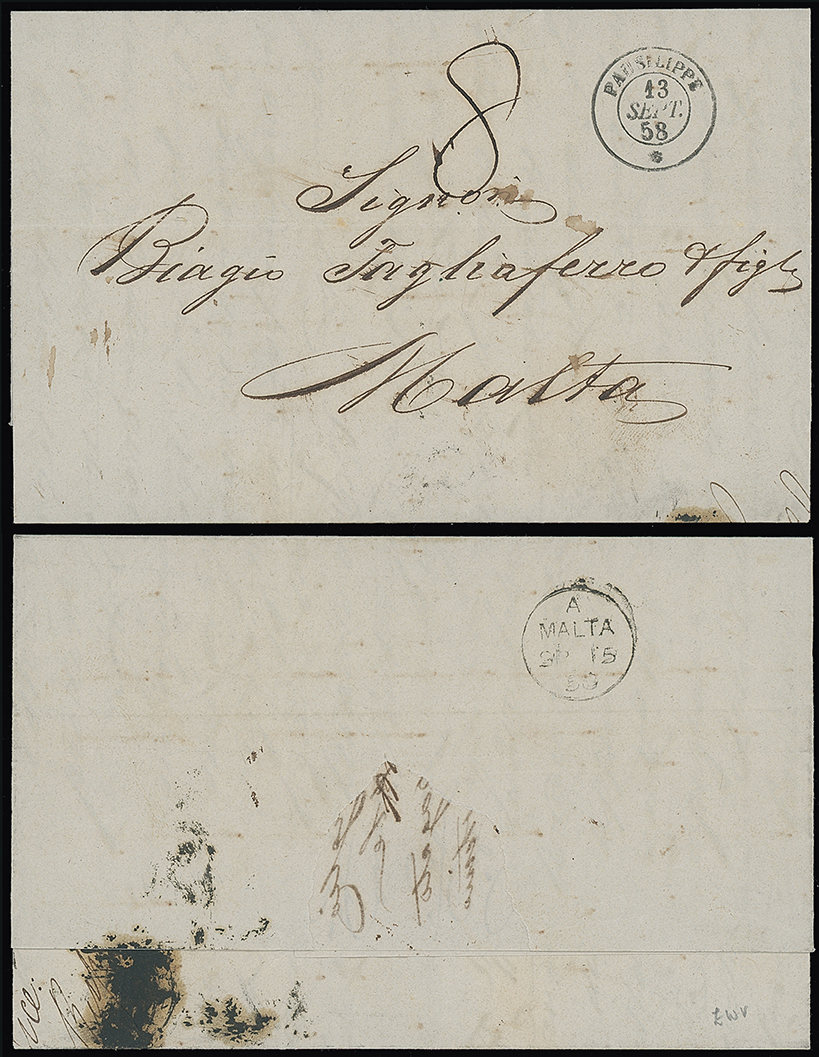 8
PAUSILIPPE
13
SEPT.
58
Signori
Biagio Tagliaferro & figli
Malta
A
MALTA
SP 15
58